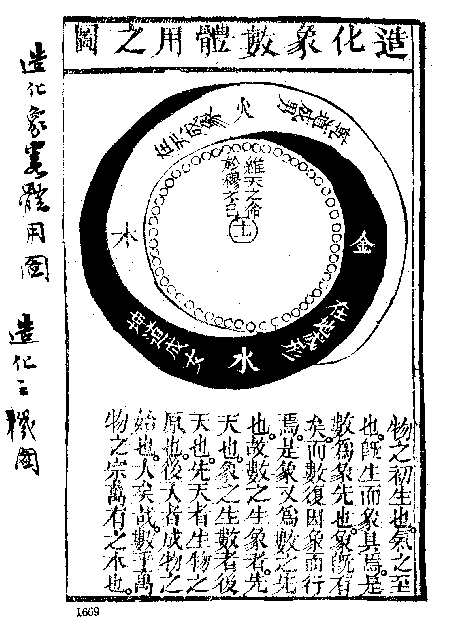 造化象數體用之圖
火
乾道成男
在天成象
維天之命
於穆不已
土
木
金
在地成形
坤道成女
水
物之初生也。氣之至
也。既生而象具焉。是
數爲象先也。象既有
矣。而數復因象而行
焉。是象又爲數之先
也。故數之生象者。先
天也。象之生數者。後
天也。先天者。生物之
原也。後天者。成物之
始也。大矣哉。數乎。萬
物之宗。萬有之本也。
造化象數體用圖
造化三機圖
1669